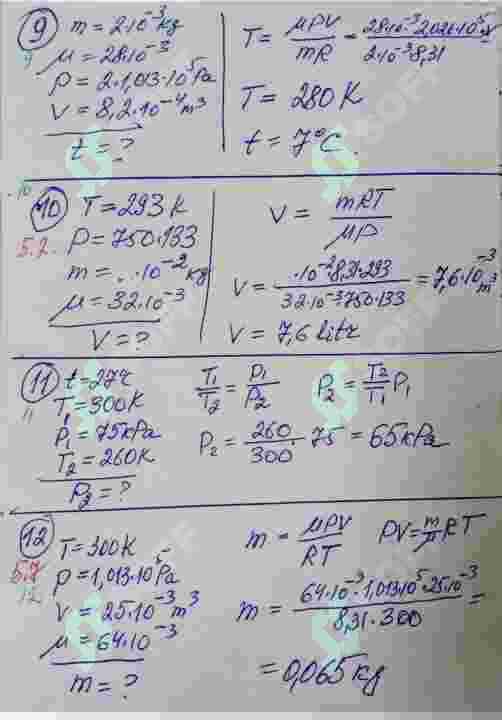 9 m = 2·10⁻³kg
μ = 28·10⁻³
P = 2·1,013·10⁵Pa
V = 8,2·10⁻⁴m³
t = ?
T = μPV/mR = 28·10⁻³·2,026·10⁵/2·10⁻³·8,31
T = 280 K
t = 7°C
10 T = 293 K
5.2.
P = 750·133
m = ..·10⁻²kg
μ = 32·10⁻³
V = ?
V = mRT/μP
V = ·10⁻²·8,31·293/32·10⁻³·750·133 = 7,6·10⁻³m³
V = 7,6 litr
11 t = 27
T₁ = 300K
P₁ = 75kPa
T₂ = 260K
P₂ = ?
T₁/T₂ = P₁/P₂ P₂ = T₂/T₁ P₁
P₂ = 260/300 · 75 = 65kPa
12 T = 300K
P = 1,013·10⁵Pa
V = 25·10⁻³m³
μ = 64·10⁻³
m = ?
m = μPV/RT PV = m/μ RT
m = 64·10⁻³·1,013·10⁵·25·10⁻³/8,31·300 =
= 0,065kg
SOFF